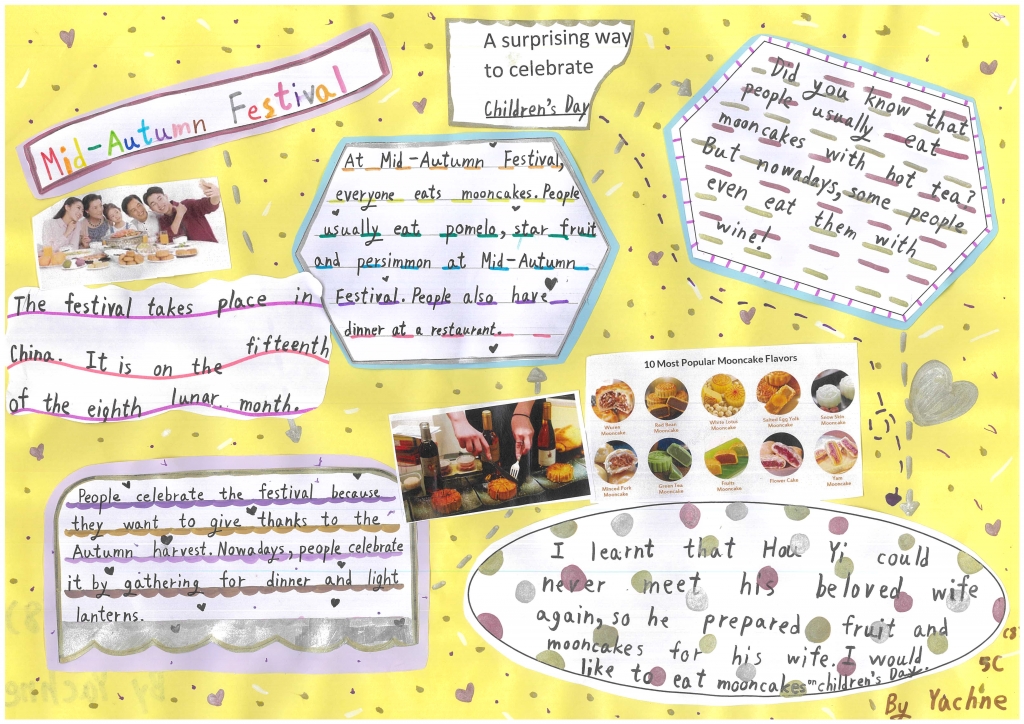 Mid-Autumn Festival
A surprising way
to celebrate
Children's Day
Did you know that
people usually eat
mooncakes with hot tea?
But nowadays, some people
even eat them with
wine!
At Mid-Autumn Festival,
everyone eats mooncakes. People
usually eat pomelo, star fruit
and persimmon at Mid-Autumn
Festival. People also have
dinner at a restaurant.
The festival takes place in
China. It is on the fifteenth
of the eighth lunar month.
10 Most Popular Mooncake Flavors
Wuren Mooncake
Red Bean Mooncake
White Lotus Mooncake
Salted Egg Yolk Mooncake
Snow Skin Mooncake
Minced Pork Mooncake
Green Tea Mooncake
Fruits Mooncake
Flower Cake
Yam Mooncake
People celebrate the festival because
they want to give thanks to the
Autumn harvest. Nowadays, people celebrate
it by gathering for dinner and light
lanterns.
I learnt that Hou Yi could
never meet his beloved wife
again, so he prepared fruit and
mooncakes for his wife. I would
like to eat mooncakes on children's Day.
5C
By Yachne